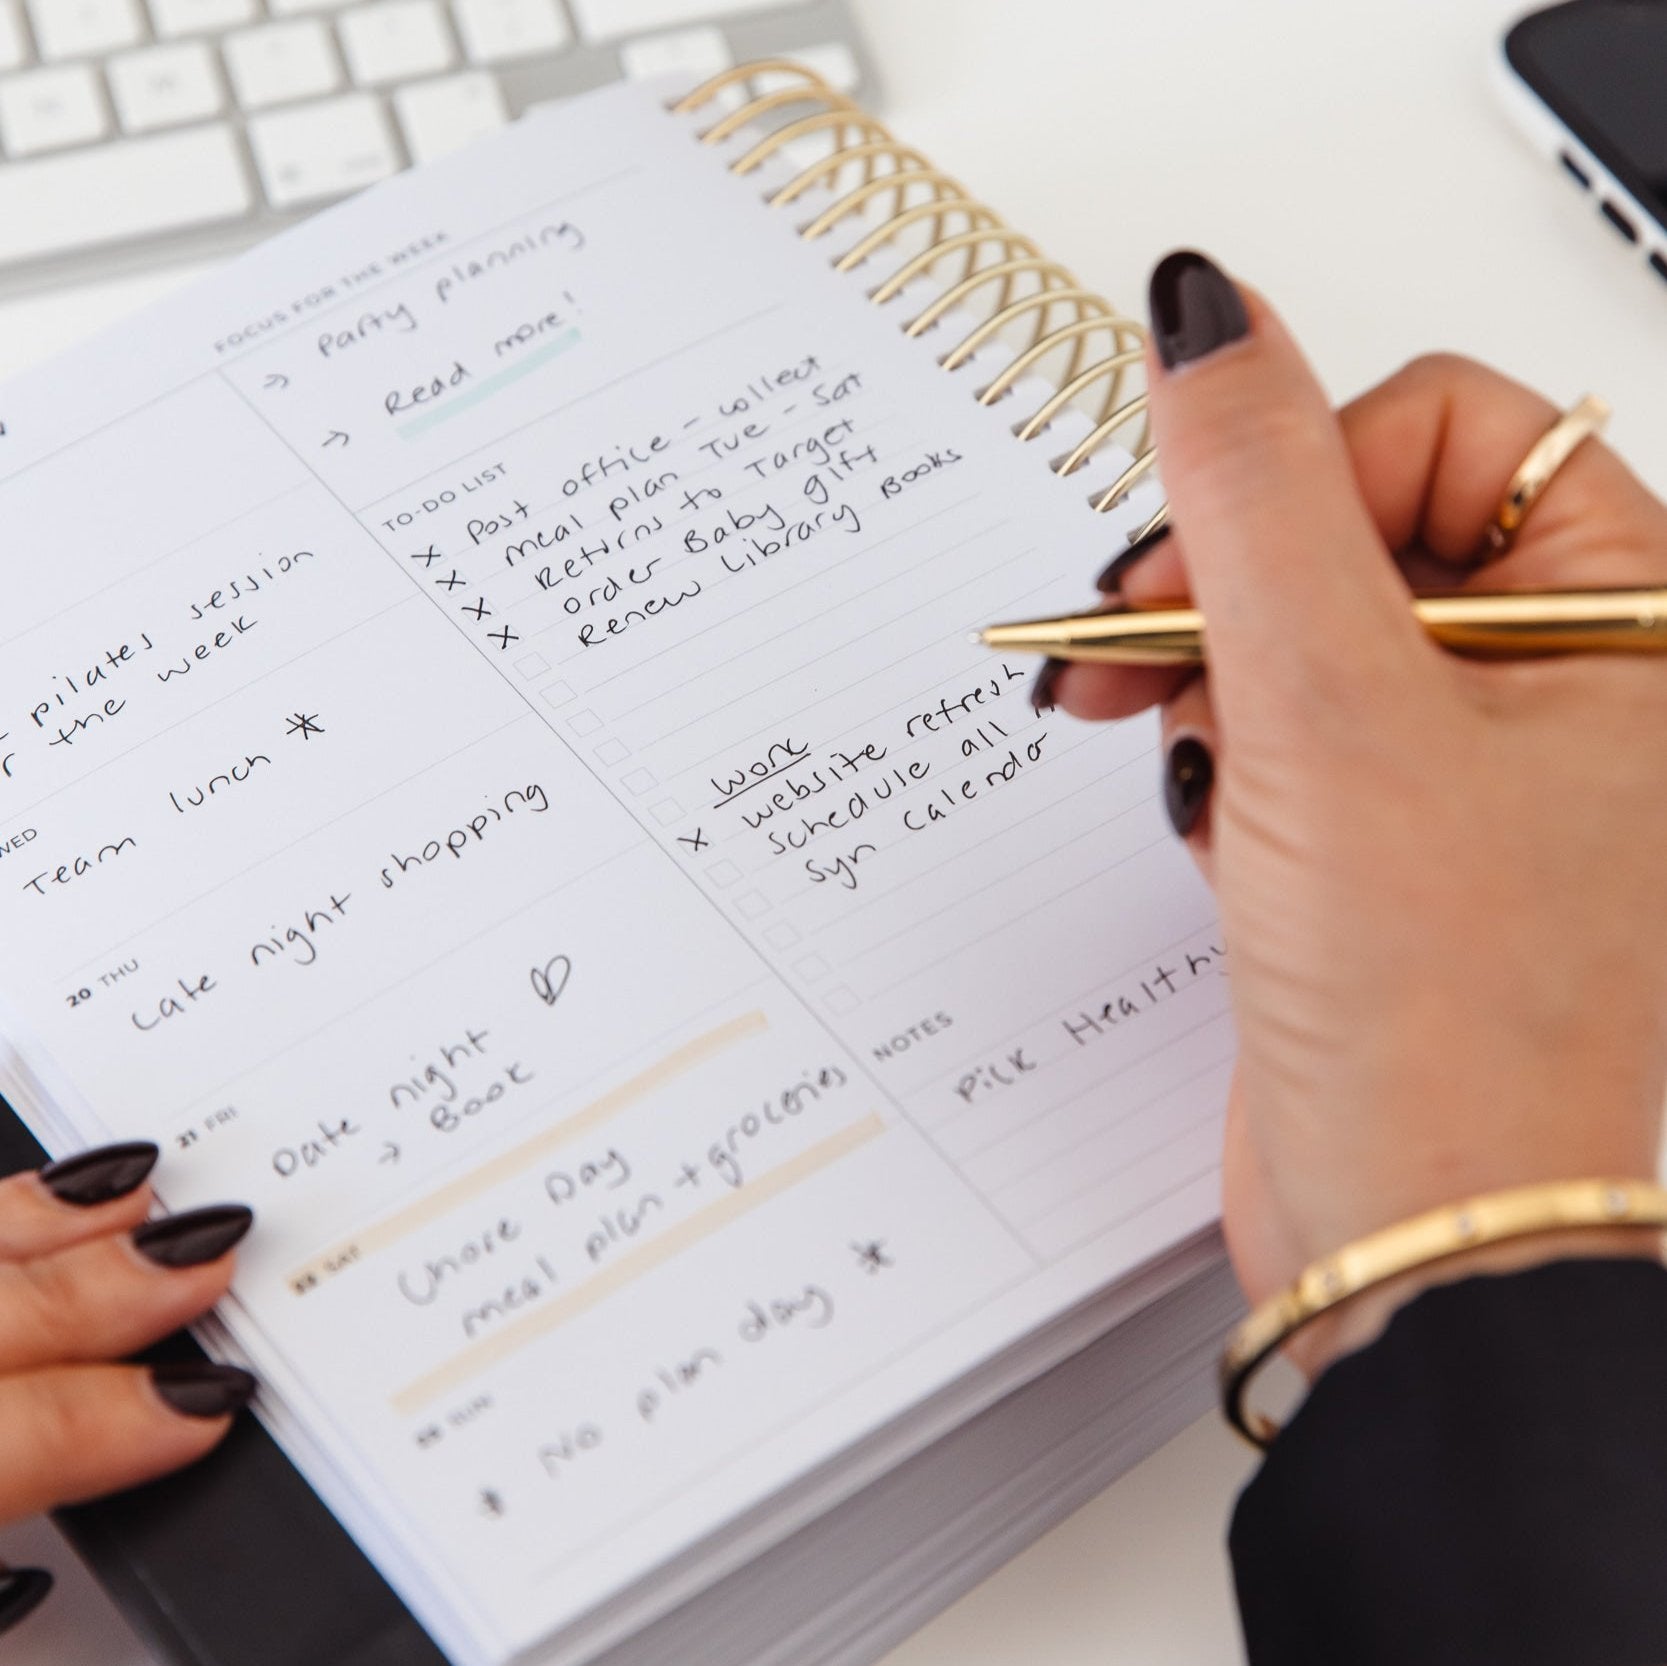 FOCUS FOR THE WEEK
→ Party planning
→ Read more!
TO-DO LIST
X Post office - collect
X meal plan Tue - Sat
X Returns to Target
X order Baby gift
Renew Library Books
work
X website refresh
schedule all
syn calendar
NOTES
Pick Healthy
pilates session
the week
WED
Team lunch *
20 THU
Late night shopping
21 FRI
Date night ♡
→ Book
22 SAT
Chore Day
meal plan + groceries
23 SUN
* No plan day *